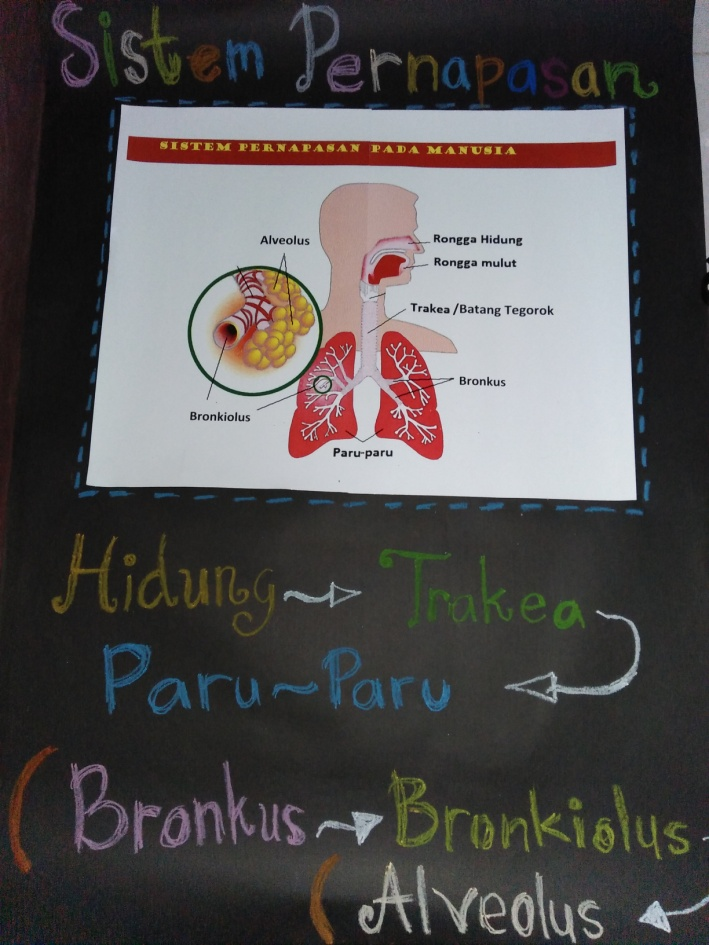 Sistem Pernapasan
SISTEM PERNAPASAN PADA MANUSIA
Alveolus
Rongga Hidung
Rongga mulut
Trakea /Batang Tegorok
Bronkus
Bronkiolus
Paru-paru
Hidung → Trakea
Paru~Paru ←
( Bronkus → Bronkiolus
( Alveolus ←